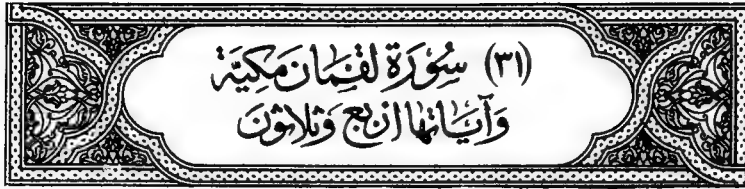 (٣١) سُورَة لقمَان مَكِيَّة
وَآيَاتهَا ارْبَع وَثلاثونَ